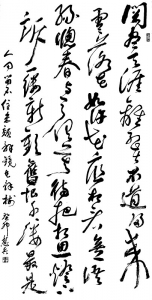 阅尽天涯离别苦不道归来
零落花如许花底相看无一语
绿窗春与天俱暮待把相思灯下
诉一缕新欢旧恨千千缕最是
人间留不住朱颜辞镜花辞树 癸卯